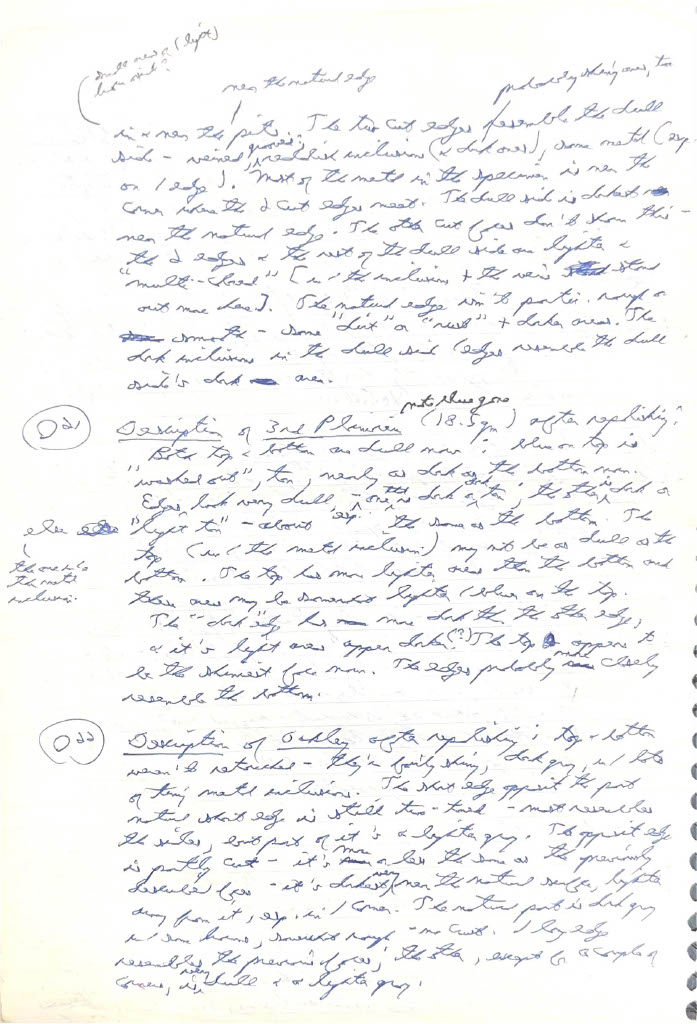 small area of (light)
near the natural edge
probably shiny ones, too
in & near the pits. The two cut edges resemble the dull
side - veined, reddish inclusions (& dark ones), some metal (esp.
on 1 edge). Most of the metal in the specimen is near the
corner where the 2 cut edges meet. The dull side is darkest
near the natural edge. The other cut faces don't show this -
the 2 edges & the rest of the dull side are lighter &
"multi-colored" [w/ the inclusions + the veins stand
out more here]. The natural edge is in parts rough &
smooth - some "dirt" or "rust" + darker areas. The
dark inclusions in the dull side / edges resemble the dull
side's dark area.
note three gone
D21 Description of 3rd Plainview (18.5gm) after repolishing:
Both top & bottom are dull now; blue on top is
"washed out", too, nearly as dark as the bottom now.
Edges look very dull, - one is dark & the other is dark &
"light tan" - about the same as the bottom. The
top (w/ the metal inclusions) may not be as dull as the
the one w/
the metal
inclusion.
bottom. The top has more lighter areas than the bottom and
these areas may be somewhat lighter / bluer on the top.
The "dark" edge has more dark than the other edge,
& it's light areas appear darker (?) The top appears to
be the shiniest face now. The edges probably more closely
resemble the bottom.
D22 Description of Oakley after repolishing: top & bottom
weren't retouched - they're fairly shiny, dark gray, w/ lots
of tiny metal inclusions. The short edge opposite the part
natural short edge is still two-toned - most resembles
the sides, but part of it is a lighter gray. The opposite edge
is partly cut - it's more or less the same as the previously
described face - it's darkest near the natural surface, lighter
away from it, esp. in 1 corner. The natural part is dark gray
w/ some brown, somewhat rough - no crust. 1 long edge
resembles the previous faces; the other, except for a couple of
corners, is very dull & a lighter gray.